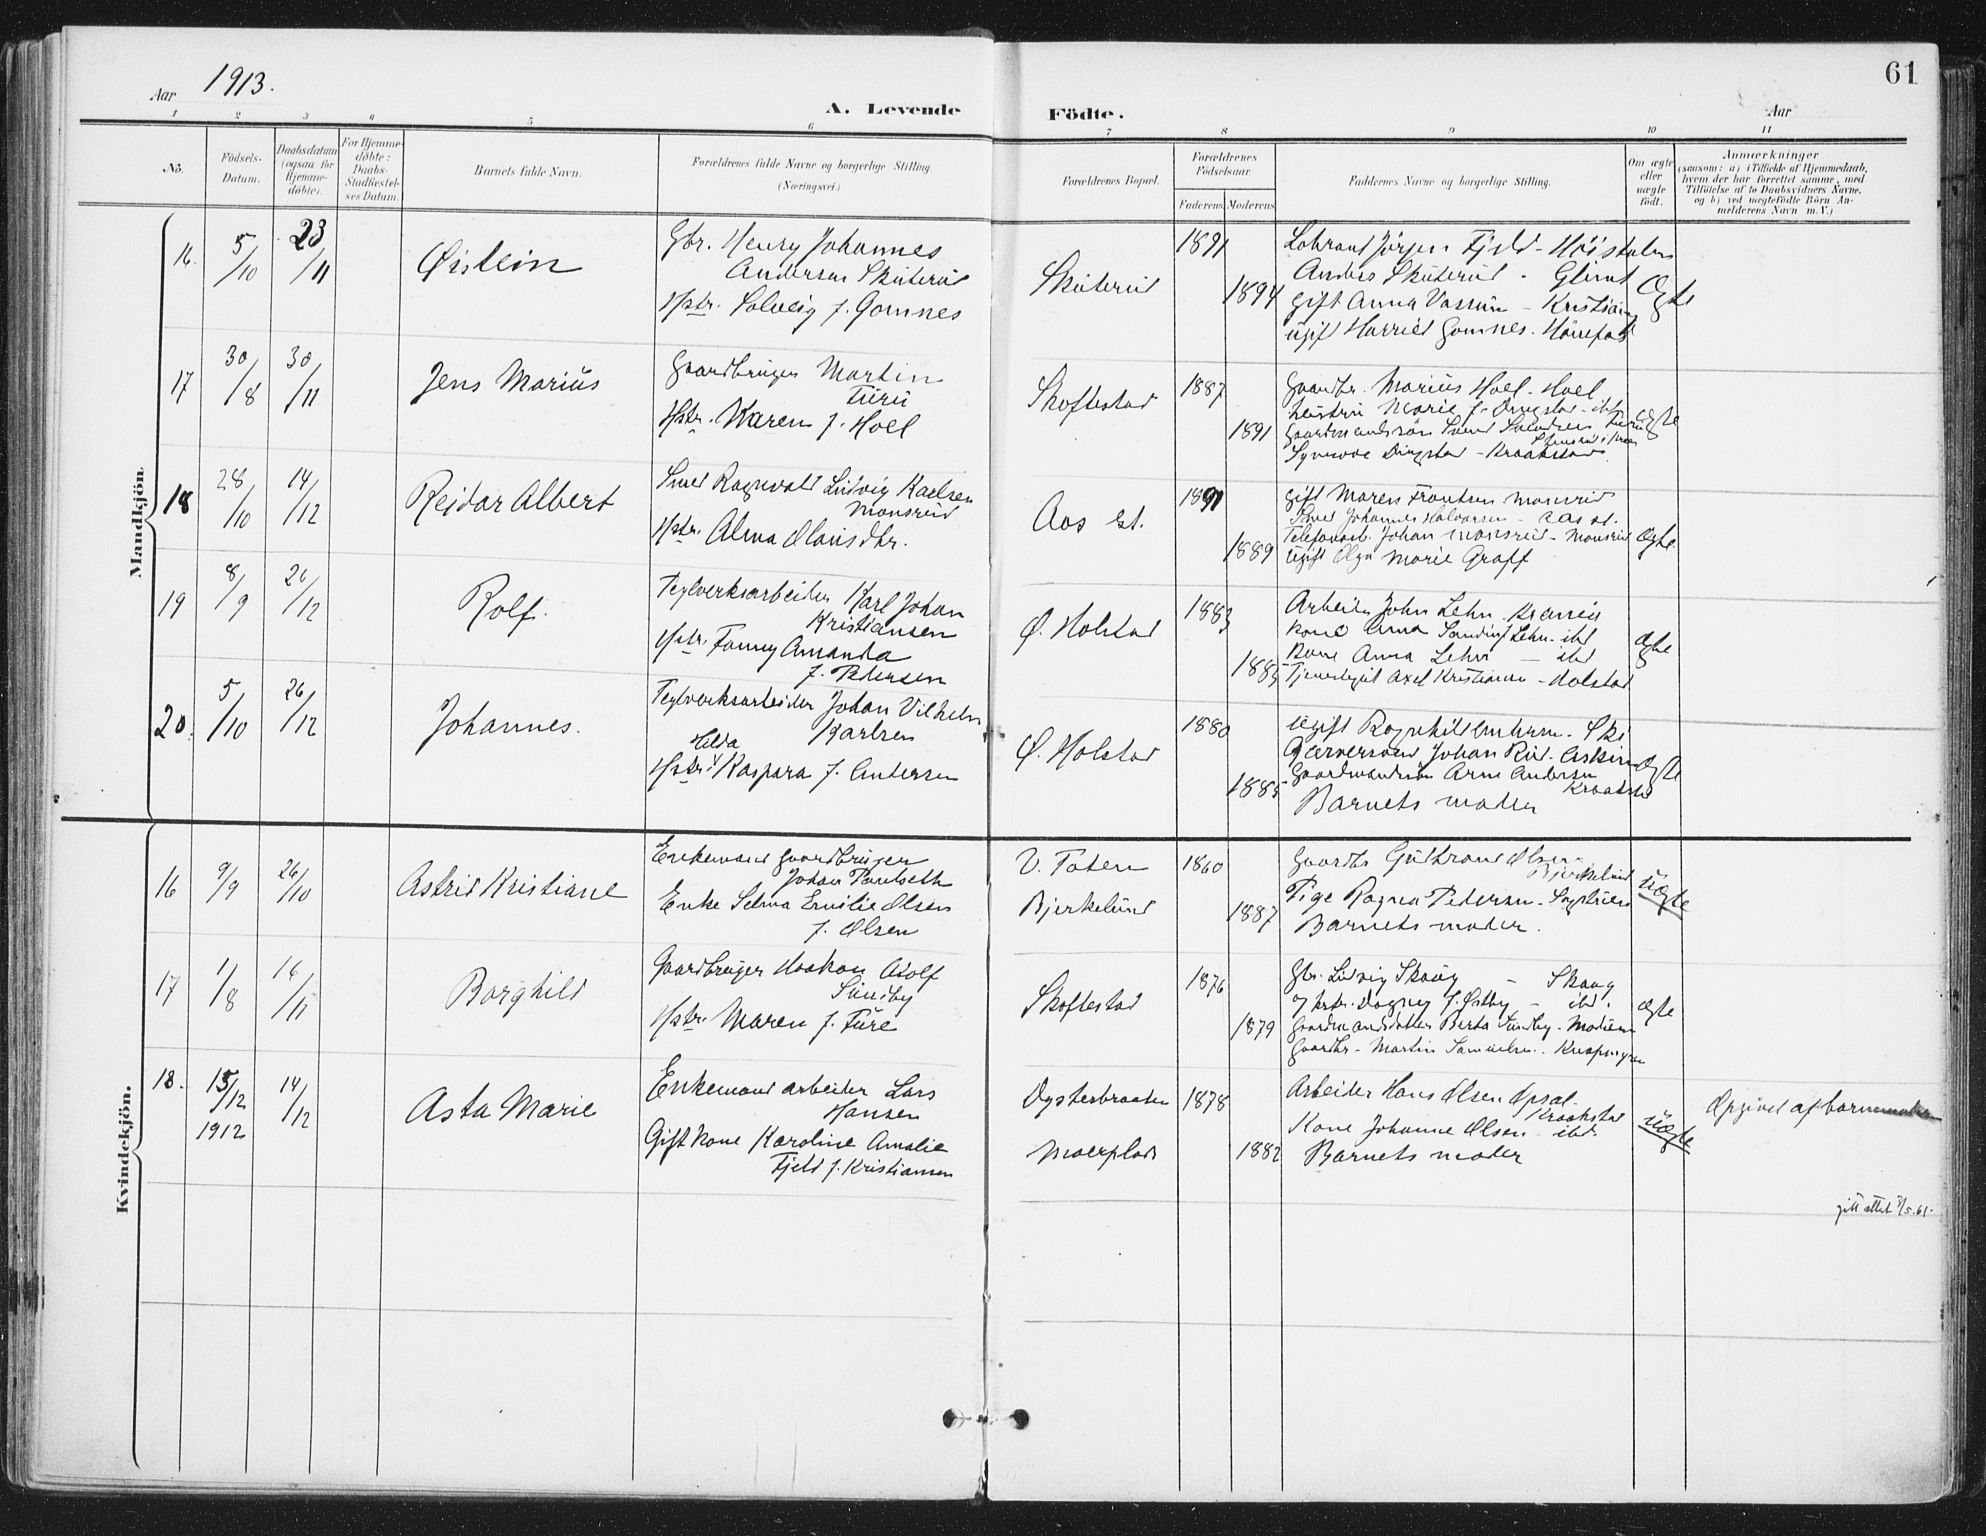 61
Aar 1913.
A. Levende Födte.
Aar
1 2 3 4 5 6 7 8 9 10 11
No.
Födsels-Datum.
Daabsdatum (ogsaa for Hjemmedöbte).
For Hjemmedöbte: Daabs-Stadfæstelses Datum.
Barnets fulde Navn.
Forældrenes fulde Navne og borgerlige Stilling.
(Næringsvei.)
Forældrenes Bopæl.
Forældrenes Födselsaar.
Faderens. Moderens.
Faddernes Navne og borgerlige Stilling.
Om ægte eller uægte födt.
Anmærkninger
(saasom: a) i Tilfælde af Hjemmedaab, hvem der har forrettet samme, med Tilföielse af to Daabsvidners Navne, og b) ved uægtefödte Börn Anmelderens Navn m. V.)
Mandkjön.
16. 5/10 23/11 Øistein
Gbr. Henry Johannes
Andersen Skuterud
Hstr. Solveig f. Gomnes
Skuterud
1891
1894
Jörgen Fjeld -
Anders Skuterud -
gift Anna - Kristiania
ugift Harriet Gomnes - Hönefos
Ægte
17 30/8 30/11 Jens Marius
Gaardbruger Martin
Furu
Hstr. Karen f. Hoel
Skoftestad
1887
1891
Gaardbr. Marius Hoel - Hoel
Hustru Marie f. - ibd
ægte
18 28/10 14/12 Reidar Albert
Smed Ragnvald Ludvig Karlsen
Monsrud
Hstr. Alma Olausdtr.
Aas st.
1891
1889
gift Maren Frantsen Monsrud
Smed Johannes Halvorsen - Aas st.
Telefonarb. Johan Monsrud - Monsrud
ugift Olga Marie Graff
Ægte
19 8/9 26/12 Rolf.
Teglverksarbeider Karl Johan
Kristiansen
Hstr. Fanny Amanda
f. Pedersen
Ø. Holstad
1883
1885
Arbeider John Lehn -
Kone Anna Lehn - ibd
Anna Lehn - ibd
Axel Kristiansen - Holstad
Ægte
20. 5/10 26/12 Johannes.
Teglverksarbeider Johan Vilhelm
Karlsen
Hilda
Hstr. Kaspara f. Andersen
Ø. Holstad
1880
1885
Ugift Ragnhild - Ski
Johan Rud - Askim
Gaardmandssön Arne Andersen
Kraakstad
Barnets moder
Ægte
Kvindekjön.
16 9/9 26/10 Astrid Kristiane
Enkemand gaardbruger
Johan
Enke Selma Emilie Olsen
f. Olsen
V. Toten
Bjerkelund
1860
1887
Gaardbr. Gulbrand Olsen -
Bjerkelund
Pige Ragna Pedersen -
Barnets moder.
Uægte
17 1/8 16/11 Borghild
Gaardbruger Haakon Adolf
Sundby
Hstr. Maren f. Fure
Skoftestad
1876
1879
Gbr. Ludvig Skaug - Skaug
og hstr. Dagny f. Østby - ibd.
Gaardmandsdatter Berta Sundby -
Gaardbr. Martin Samuelsen -
ægte
18. 15/12 1912 14/12 Asta Marie
Enkemand arbeider Lars
Hansen
Gift kone Karoline Amalie
Fjeld f. Kristiansen
Dysterbraaten
Moerplads
1878
1882
Arbeider Hans Olsen Opsal -
Kraakstad
Kone Johanne Olsen - ibd
Barnets moder
Uægte
Opgivet af barnemoder
gitt attest 5.61.